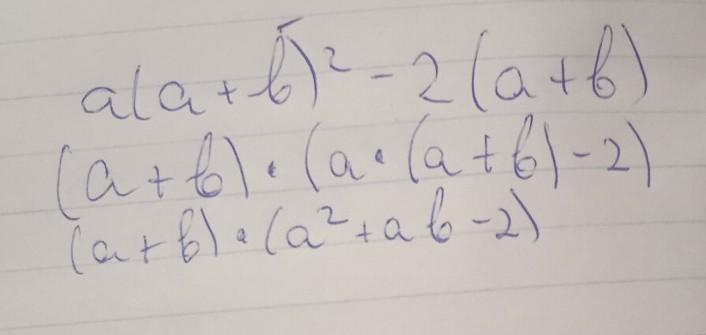 a(a+b)² - 2(a+b)
(a+b)·(a·(a+b)-2)
(a+b)·(a²+ab-2)